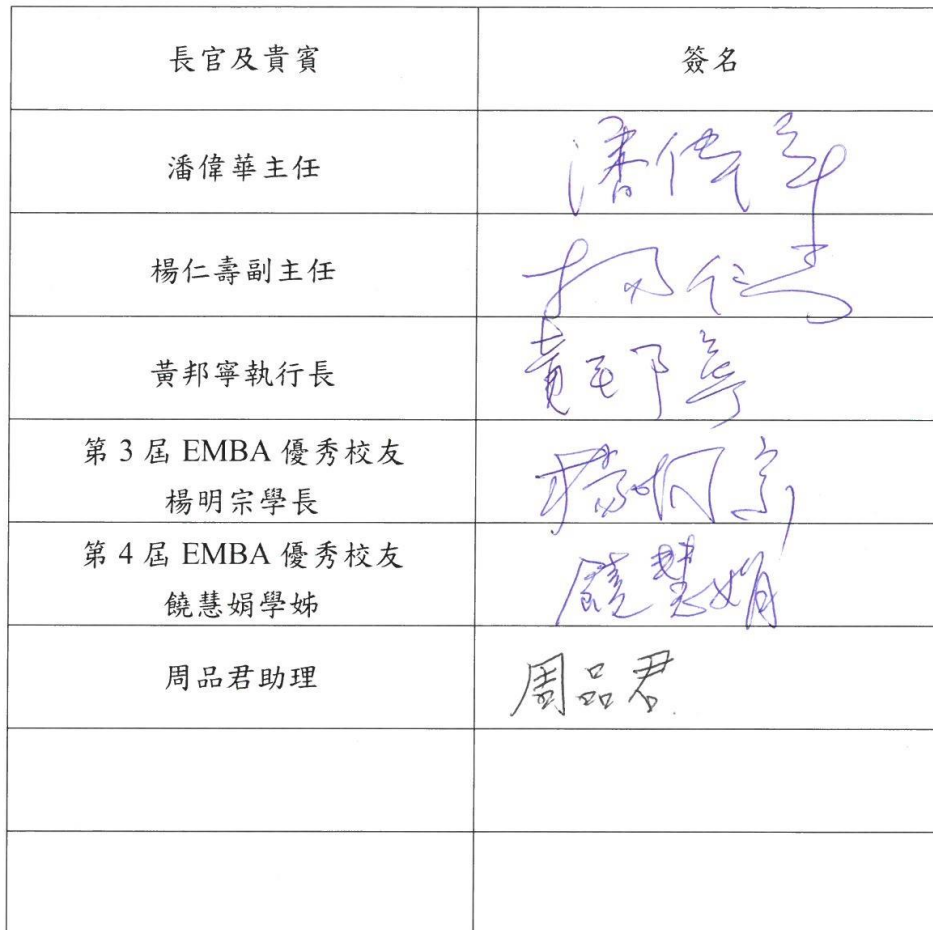 長官及貴賓
簽名
潘偉華主任
潘偉華
楊仁壽副主任
楊仁壽
黃邦寧執行長
黃邦寧
第 3 屆 EMBA 優秀校友
楊明宗學長
楊明宗
第 4 屆 EMBA 優秀校友
饒慧娟學姊
饒慧娟
周品君助理
周品君